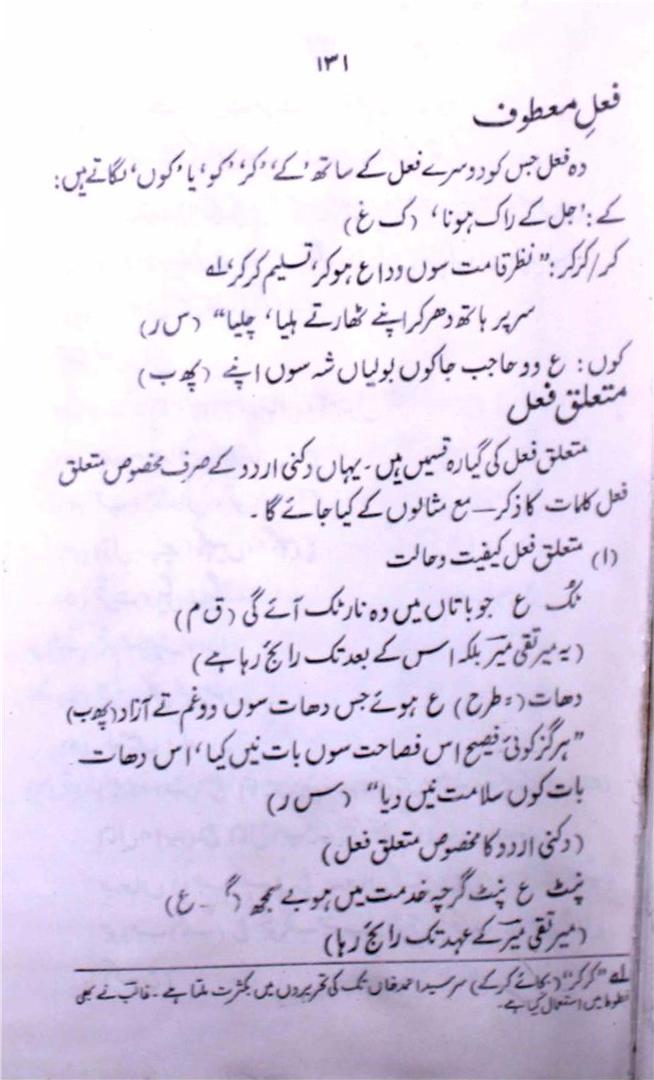 ۱۳۱
فعلِ معطوف
وہ فعل جس کو دوسرے فعل کے ساتھ ’کے‘، ’کر‘، ’کو‘، یا ’کوں‘ لگاتے ہیں:
کے: ’جل کے راک ہونا‘ (ک غ)
کر/کرکر: ”نظر قامت سوں وداع ہو کر، تسلیم کرکر لہ
سر پر ہاتھ دھر کر اپنے ٹھارتے ہلیا، چلیا“ (س ر)
کوں: ع وو حاجب جا کوں بولیاں شہ سوں اپنے (پھ ب)
متعلق فعل
متعلق فعل کی گیارہ قسمیں ہیں۔ یہاں دکنی اردو کے صرف مخصوص متعلق
فعل کلمات کا ذکر مع مثالوں کے کیا جائے گا۔
(۱) متعلق فعل کیفیت و حالت
نُک ع جو باتاں میں وہ نار نک آئے گی (ق م)
(یہ میر تقی میرؔ بلکہ اس کے بعد تک رائج رہا ہے)
دھات (= طرح) ع ہوئے جس دھات سوں دو غم تے آزاد (پھ ب)
”ہرگز کوئی فصیح اس فصاحت سوں بات نیں کیا، اس دھات
بات کوں سلامت نیں دیا“ (س ر)
(دکنی اردو کا مخصوص متعلق فعل)
نپٹ ع نپٹ گرچہ خدمت میں ہو بے سمجھ (گ ع)
(میر تقی میرؔ کے عہد تک رائج رہا)
لہ ”کرکر“ (بجائے کرکے) سرسید احمد خاں تک کی تحریروں میں بکثرت ملتا ہے۔ غالبؔ نے بھی
خطوط میں استعمال کیا ہے۔